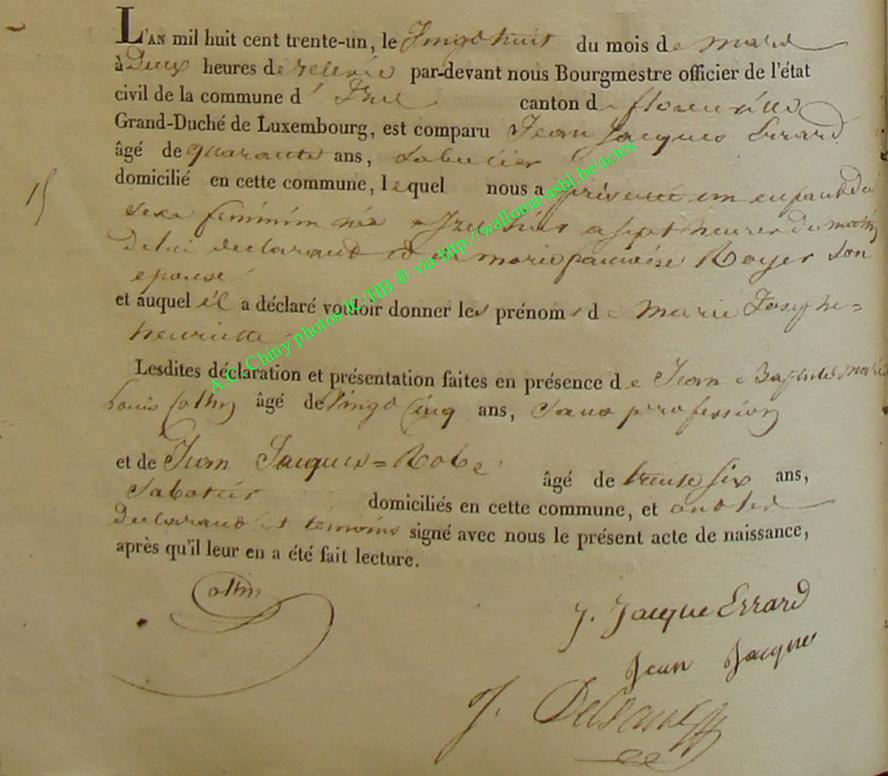 L'AN mil huit cent trente-un, le Vingt huit du mois de mars
à Deux heures de relevée par-devant nous Bourgmestre officier de l'état
civil de la commune d' Izel canton de florenville
Grand-Duché de Luxembourg, est comparu Jean Jacques Errard
âgé de quarante ans,
15
domicilié en cette commune, lequel nous a présenté un enfant du
sexe feminin née hier a sept heures du matin
De lui declarant et de marie françoise Royer son
epouse
et auquel il a déclaré vouloir donner les prénoms de Marie Josephe=
henriette
Lesdites déclaration et présentation faites en présence de Jean Baptiste marie
Louis Collin âgé de Vingt Cinq ans, Sans profession
et de Jean Jacques=Robe âgé de trente six ans,
Sabotier domiciliés en cette commune, et ont les
Declarant et temoins signé avec nous le présent acte de naissance,
après qu'il leur en a été fait lecture.
Collin
J. Jacque Errard
Jean Jacques
J.
A.C. Chiny photos IC/HB ® via http://wallonia-asbl.be/actes